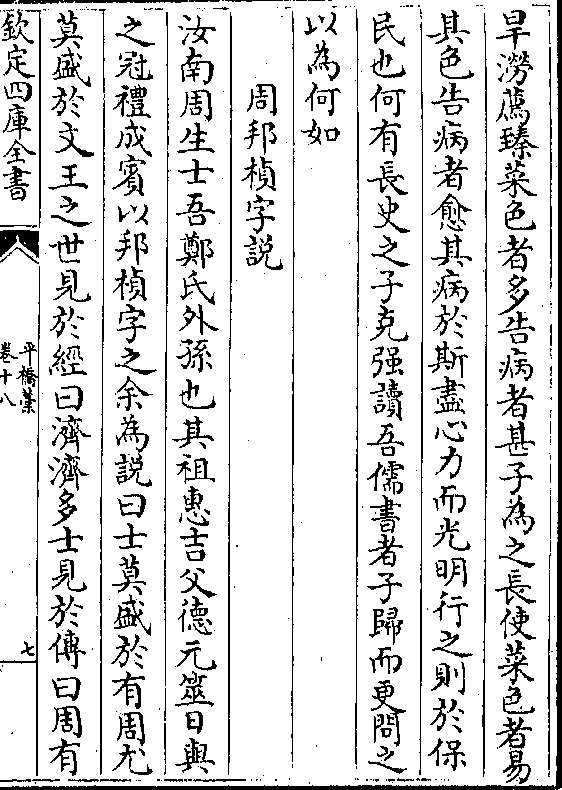 旱澇薦臻菜色者多告病者甚子為之長使菜色者易
其色告病者愈其病於斯盡心力而光明行之則於保
民也何有長史之子克强讀吾儒書者子歸而更問之
以為何如
周邦楨字說
汝南周生士吾鄭氏外孫也其祖惠吉父德元筮日與
之冠禮成賓以邦楨字之余為説曰士莫盛於有周尤
莫盛於文王之世見於經曰濟濟多士見於傳曰周有
欽定四庫全書
平橋藁
卷十八
七